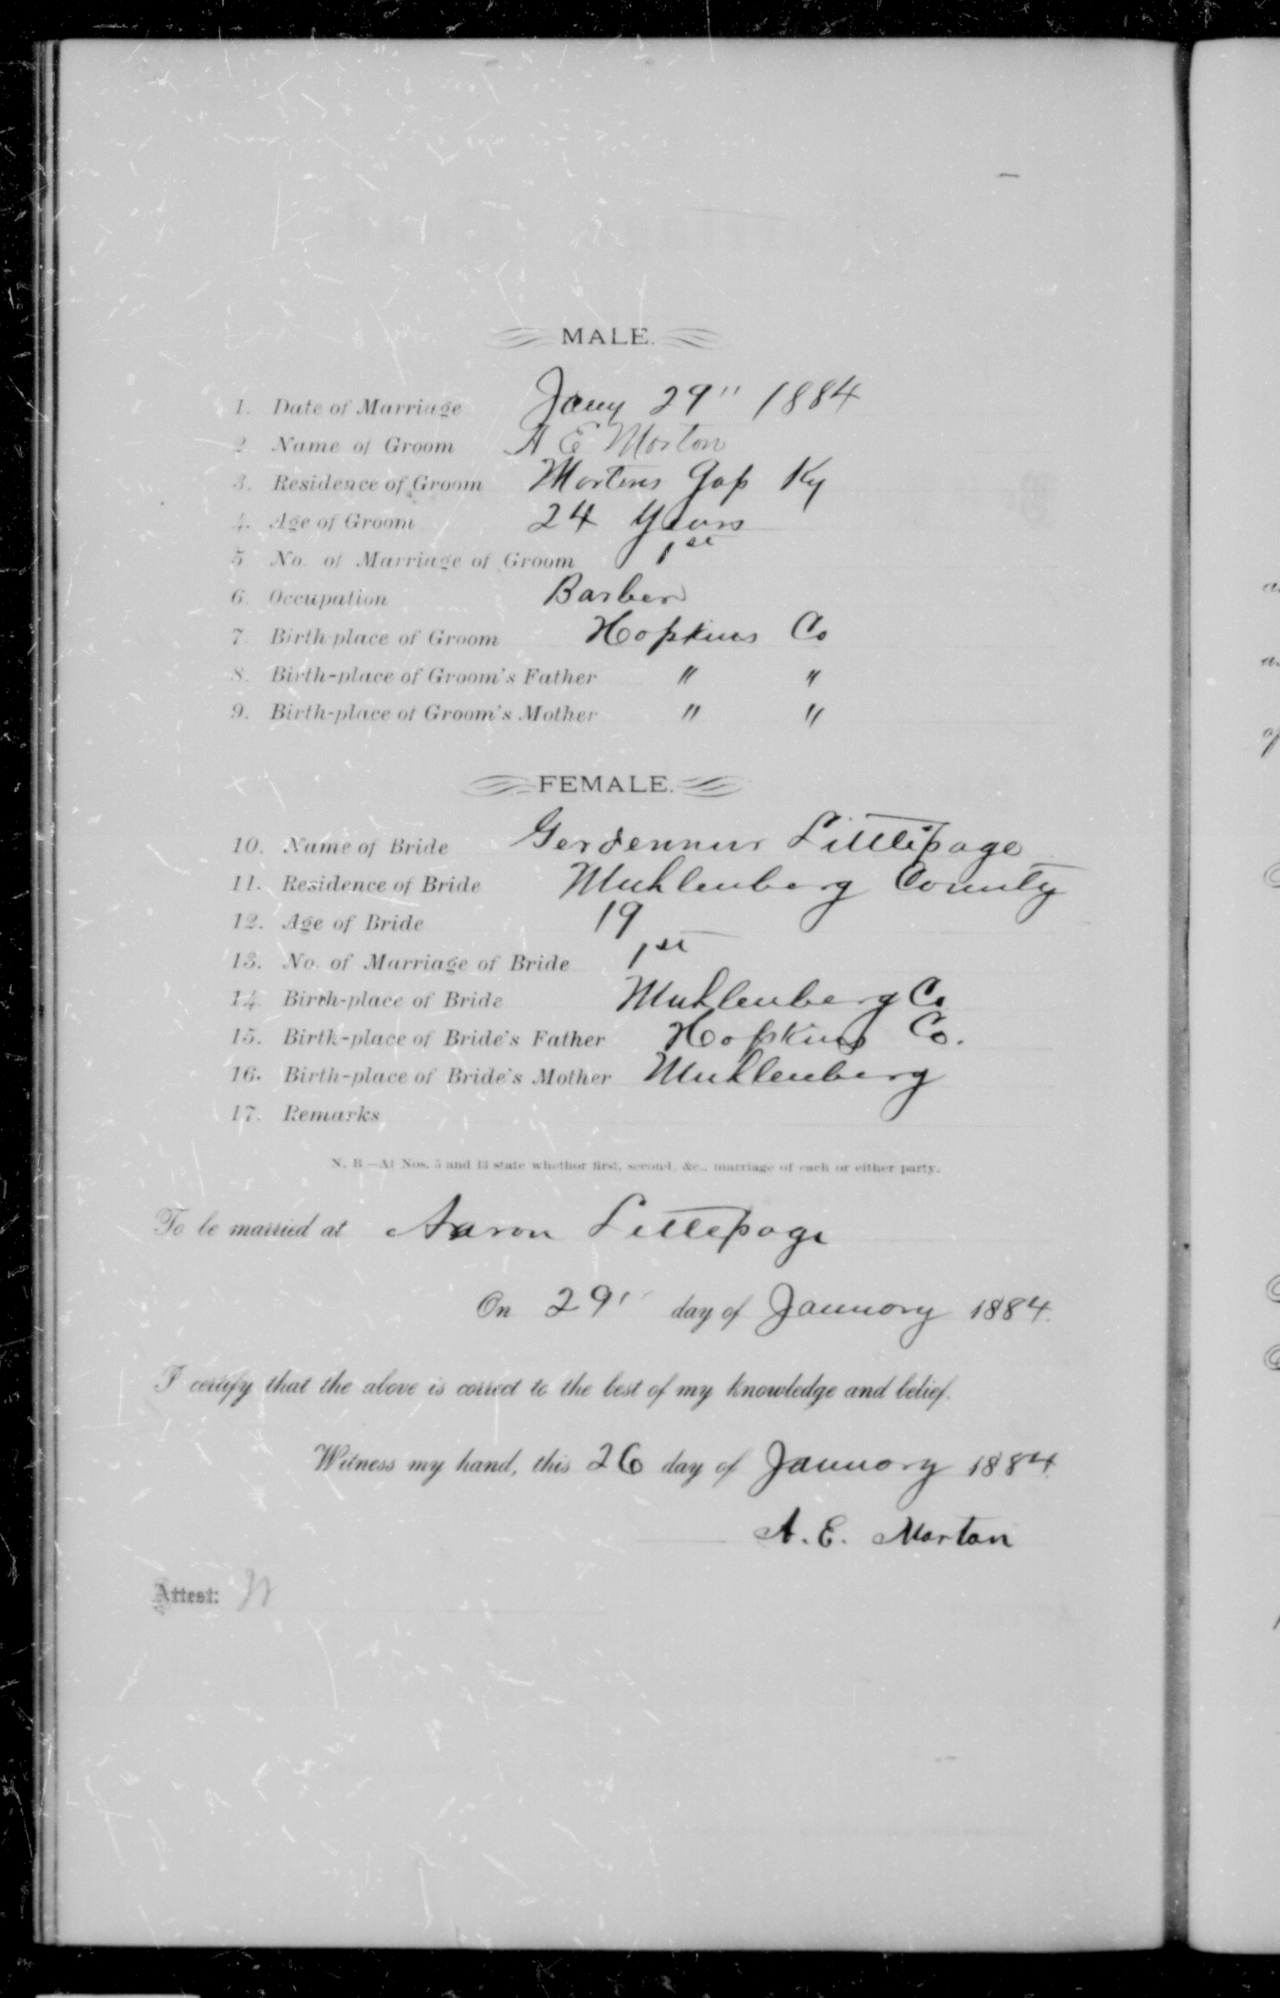 MALE.
1. Date of Marriage Jany 29" 1884
2. Name of Groom A E Morton
3. Residence of Groom Mortons Gap Ky
4. Age of Groom 24 Years
5. No. of Marriage of Groom 1st
6. Occupation Barber
7. Birth-place of Groom Hopkins Co
8. Birth-place of Groom's Father " "
9. Birth-place of Groom's Mother " "
FEMALE.
10. Name of Bride Littlepage
11. Residence of Bride Muhlenberg County
12. Age of Bride 19
13. No. of Marriage of Bride 1st
14. Birth-place of Bride Muhlenberg Co
15. Birth-place of Bride's Father Hopkins Co.
16. Birth-place of Bride's Mother Muhlenberg
17. Remarks
N. B—At Nos. 5 and 13 state whether first, second, &c., marriage of each or either party.
To be married at Aaron Littlepage
On 29" day of January 1884.
I certify that the above is correct to the best of my knowledge and belief.
Witness my hand, this 26 day of January 1884.
A. E. Morton
Attest: